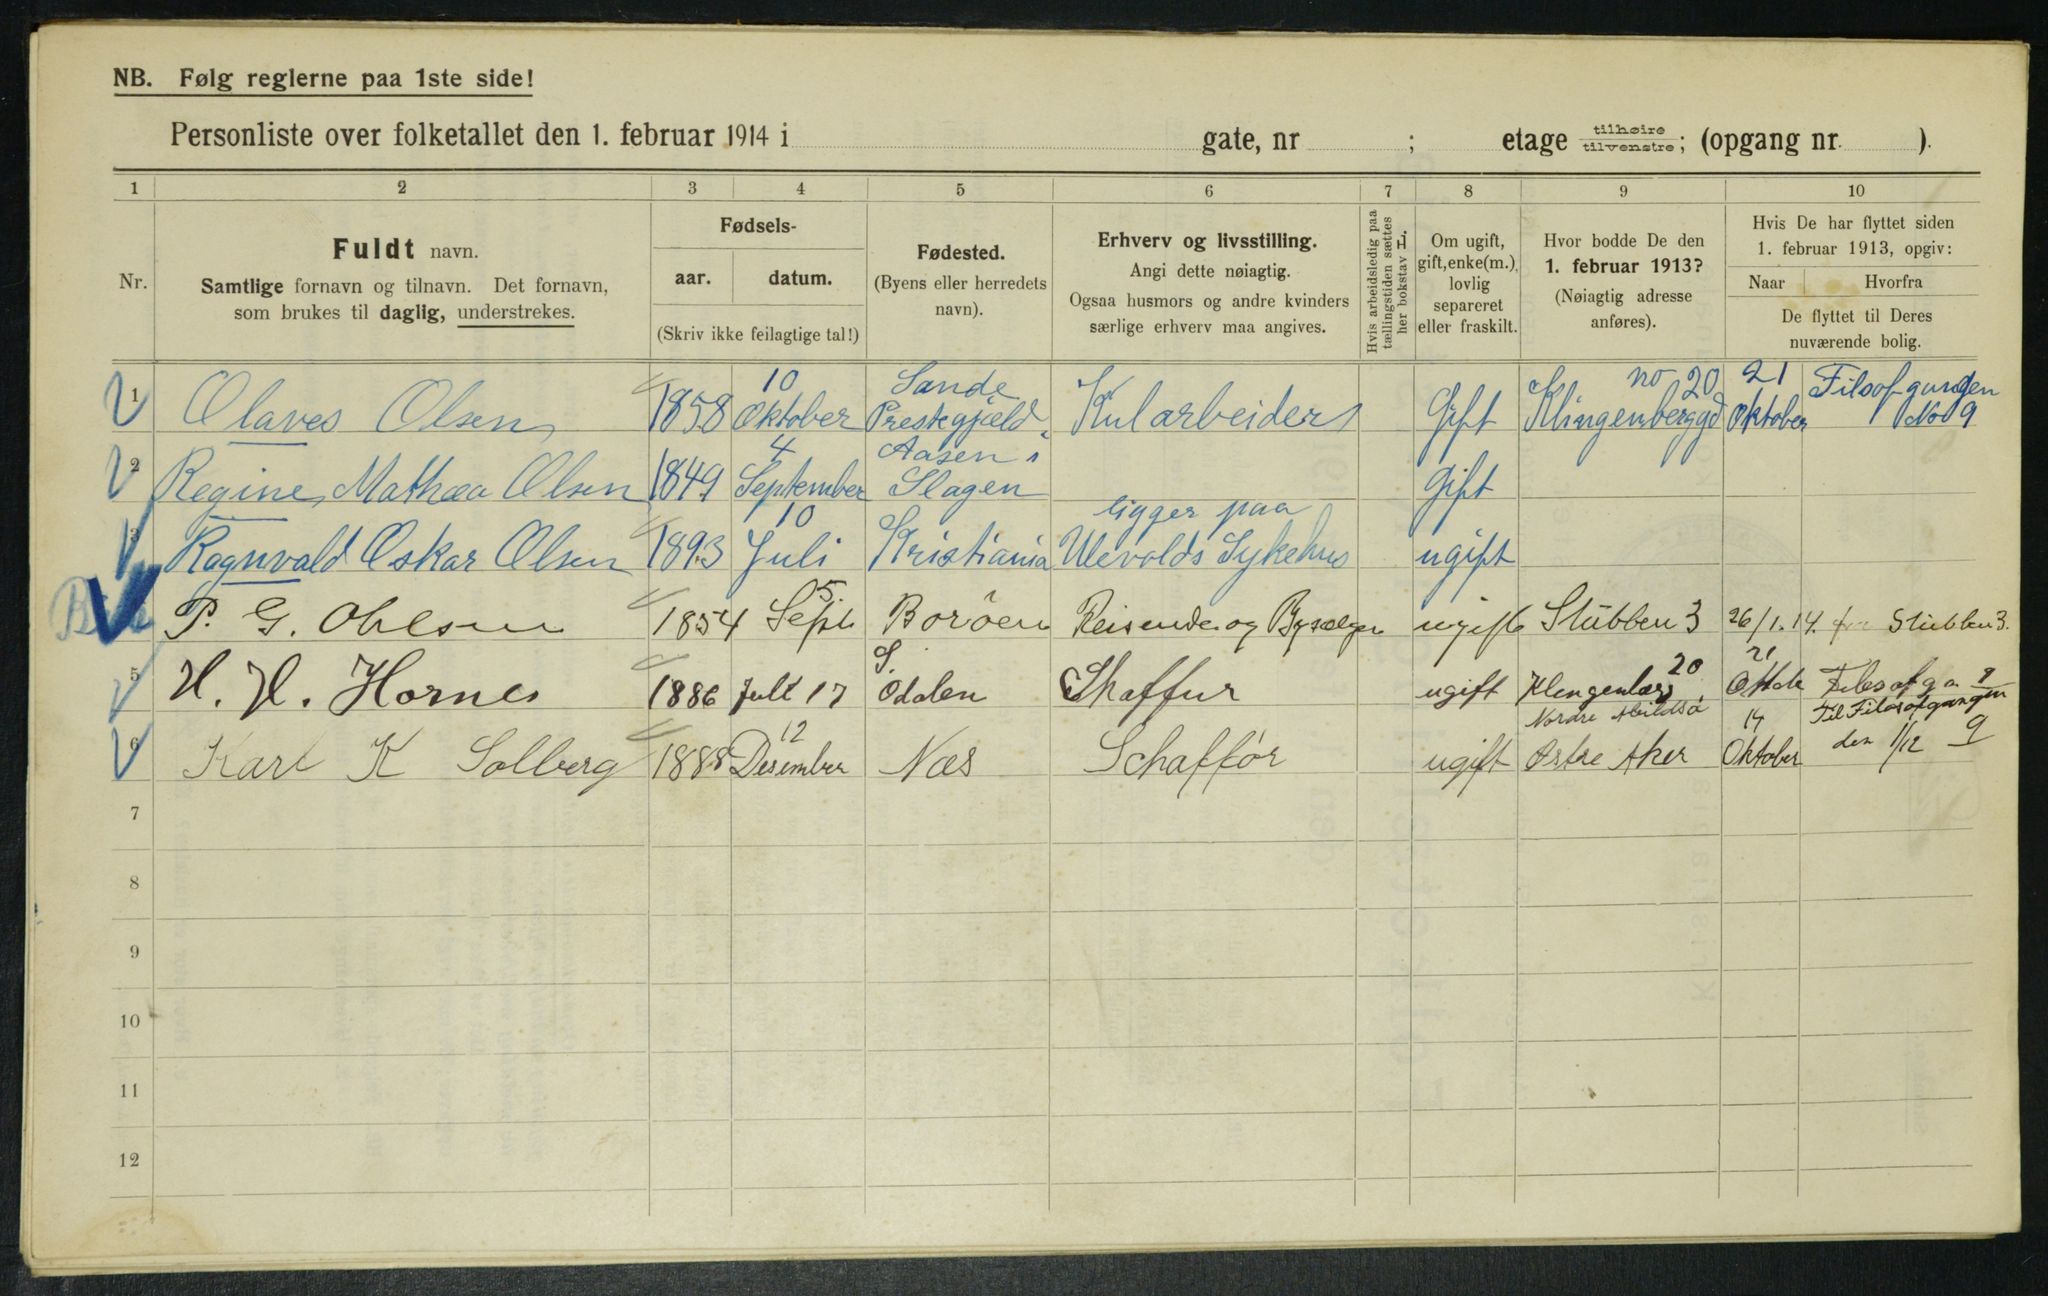 NB. Følg reglerne paa 1ste side!
Personliste over folketallet den 1. februar 1914 i gate, nr ; etage tilhøire tilvenstre; (opgang nr. ).
1 2 3 4 5 6 7 8 9 10
Nr.
Fuldt navn.
Samtlige fornavn og tilnavn. Det fornavn,
som brukes til daglig, understrekes.
Fødsels-
aar. datum.
(Skriv ikke feilagtige tal!)
Fødested.
(Byens eller herredets
navn).
Erhverv og livsstilling.
Angi dette nøiagtig.
Ogsaa husmors og andre kvinders
særlige erhverv maa angives.
Hvis arbeidsledig paa
tællingstiden sættes
her bokstav L.
Om ugift,
gift, enke(m.),
lovlig
separeret
eller fraskilt.
Hvor bodde De den
1. februar 1913?
(Nøiagtig adresse
anføres).
Hvis De har flyttet siden
1. februar 1913, opgiv:
Naar Hvorfra
De flyttet til Deres
nuværende bolig.
10 Sande no 20 21 Filsofgangen
1 Olaves Olsen 1858 Oktober Prestegjæld Kularbeider Gift Klingenberggd Oktober No 9
4 Aasen i
2 Regine Mathea Olsen 1849 September Slagen Gift
10 ligger paa
3 Ragnvald Oskar Olsen 1893 Juli Kristiania Ulevolds Sykehus ugift
5.
P. G. Ohlsen 1854 Sept. Boröen Reisende og Bysælger ugift Stubben 3 26/1.14. fra Stubben 3.
S. 20 21
5 H. H. Hornes 1886 Juli 17 Odalen Shaffur ugift Klengenberg Filosofga 9
12 Nordre 14 Til Filosofgangen
6 Karl K Solberg 1888 Desember Næs Schafför ugift Østre Aker Oktober den 1/12 9
7
8
9
10
11
12